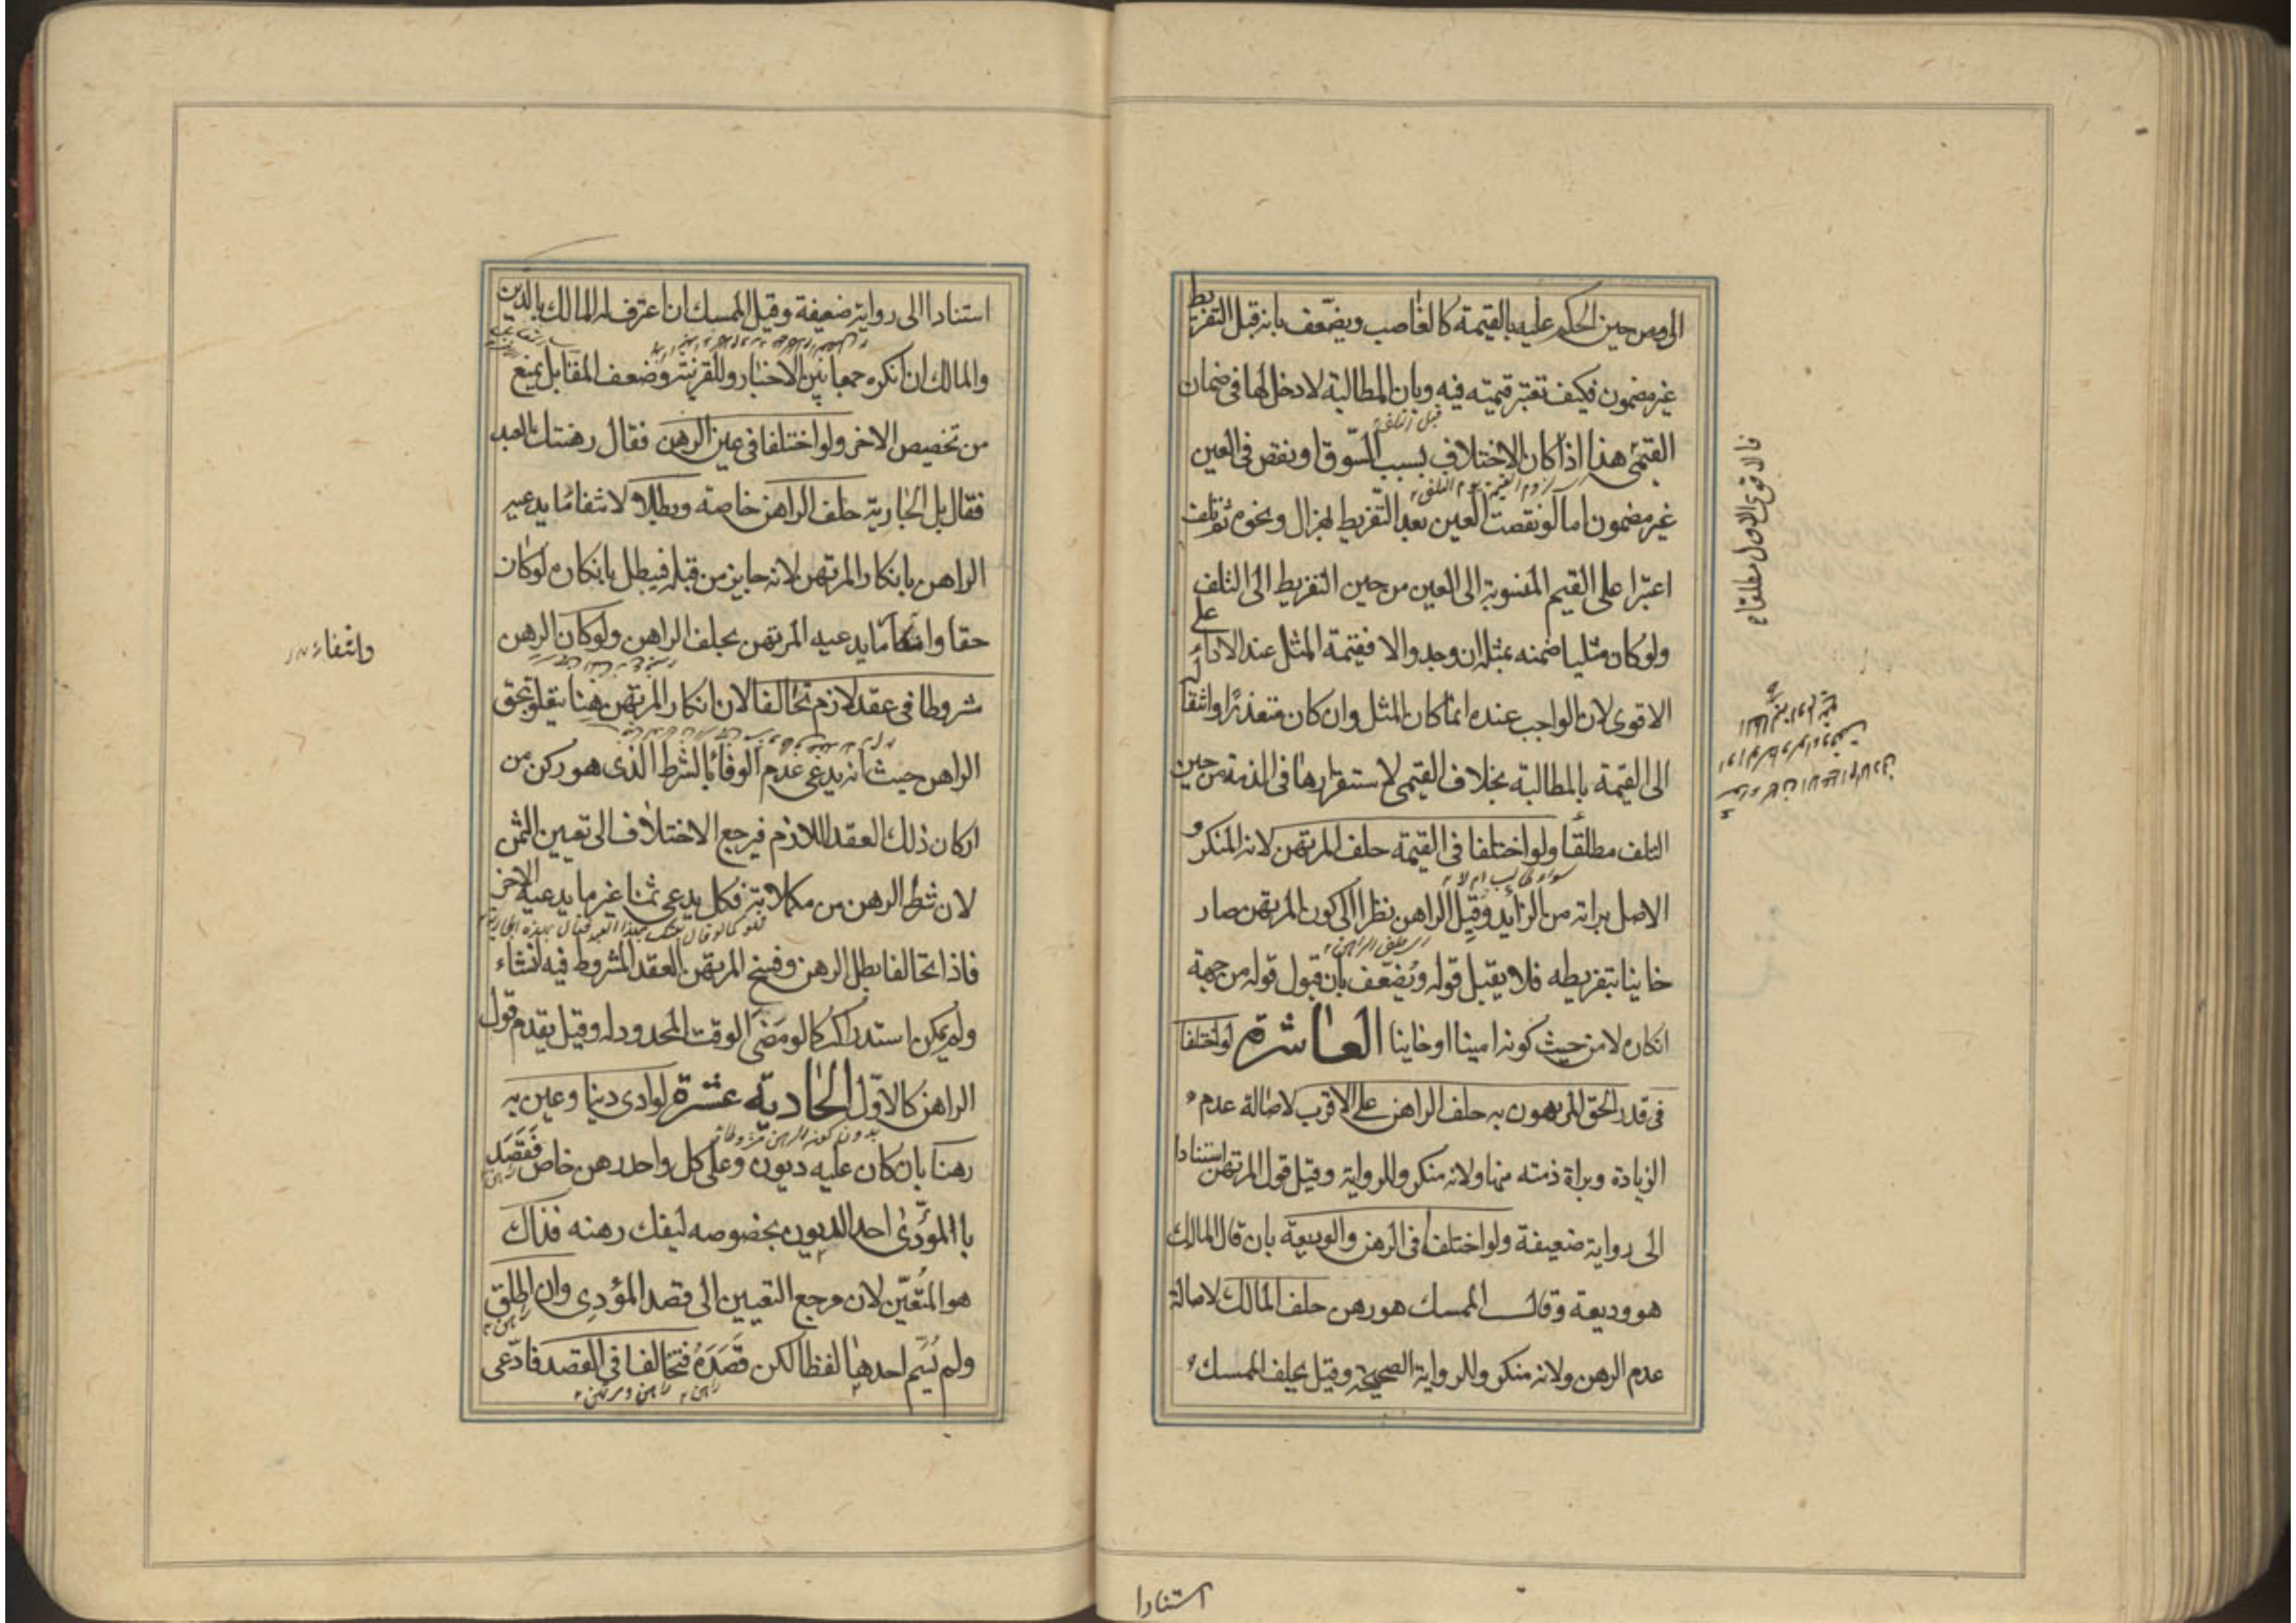 الى يوم حين الحكم عليه بالقيمة كالغاصب ويضعف بانه قبل التفريط
غير مضمون فكيف تعتبر قيمته فيه وبان المطالبة لا دخل لها فى ضمان
القيمى هذا اذا كان الاختلاف بسبب السوق او نقص فى العين
غير مضمون اما لو نقصت العين بعد التفريط بهزال ونحوه ثم تلف
اعتبر اعلى القيم المنسوبة الى العين من حين التفريط الى التلف
ولو كان مثليا ضمنه بمثله ان وجد والا فقيمة المثل عند الاداء على
الاقوى لان الواجب عنده انما كان المثل وان كان متعذرا وانتقاله
الى القيمة بالمطالبة بخلاف القيمى لاستقرارها فى الذمة من حين
التلف مطلقا ولو اختلفا فى القيمة حلف المرتهن لانه المنكر و
سواء طالب ام لا
الاصل براءته من الزائد وقيل الراهن نظرا الى كون المرتهن صار
خاينا بتفريطه فلا يقبل قوله ويضعف بان قبول قوله من جهة
انكاره لا من حيث كونه امينا او خاينا العاشرة لو اختلفا
فى قدر الحق المرهون به حلف الراهن على الاقرب لاصالة عدم
الزيادة وبراة ذمته منها ولانه منكر وللرواية وقيل قول المرتهن استنادا
الى رواية ضعيفة ولو اختلفا فى الرهن والوديعة بان قال المالك
هو وديعة وقال الممسك هو رهن حلف المالك لاصالة
عدم الرهن ولانه منكر وللرواية الصحيحة وقيل يحلف الممسك
فالاقوى الاول مطلقا
استنادا
استنادا الى رواية ضعيفة وقيل الممسك ان اعترف له المالك بالدين
والمالك ان انكره جمعا بين الاخبار وللقرينة وضعف المقابل يمنع
من تخصيص الاخر ولو اختلفا فى عين الرهن فقال رهنتك العبد
فقال بل الجارية حلف الراهن خاصة وبطلا لانتفاء ما يدعيه
الراهن بانكار المرتهن لانه جايز من قبله فيبطل بانكاره لو كان
حقا وانتفاء ما يدعيه المرتهن بحلف الراهن ولو كان الرهن
شروطا فى عقد لازم تحالفا لان انكار المرتهن هنا يتعلق بحق
الراهن حيث انه يدعى عدم الوفاء بالشرط الذى هو ركن من
اركان ذلك العقد اللازم فيرجع الاختلاف الى تعيين الثمن
لان شرط الرهن من مكملاته فكل يدعى ثمنا غير ما يدعيه الاخر
فاذا تحالفا بطل الرهن وفسخ المرتهن العقد المشروط فيه ان شاء
ولم يمكن استدراكه كما لو مضى الوقت المحدود له وقيل يقدم قول
الراهن كالاول الحادية عشرة لو ادى دينا وعين به
رهنا بان كان عليه ديون وعلى كل واحد رهن خاص فقصد
بالمؤدى احد الديون بخصوصه ليفك رهنه فذاك
هو المتعين لان مرجع التعيين الى قصد المؤدى وان اطلق
ولم يسم احدها لفظا لكن قصده فتخالفا فى القصد فادعى
راهن راهن ومرتهن
وانتفاء